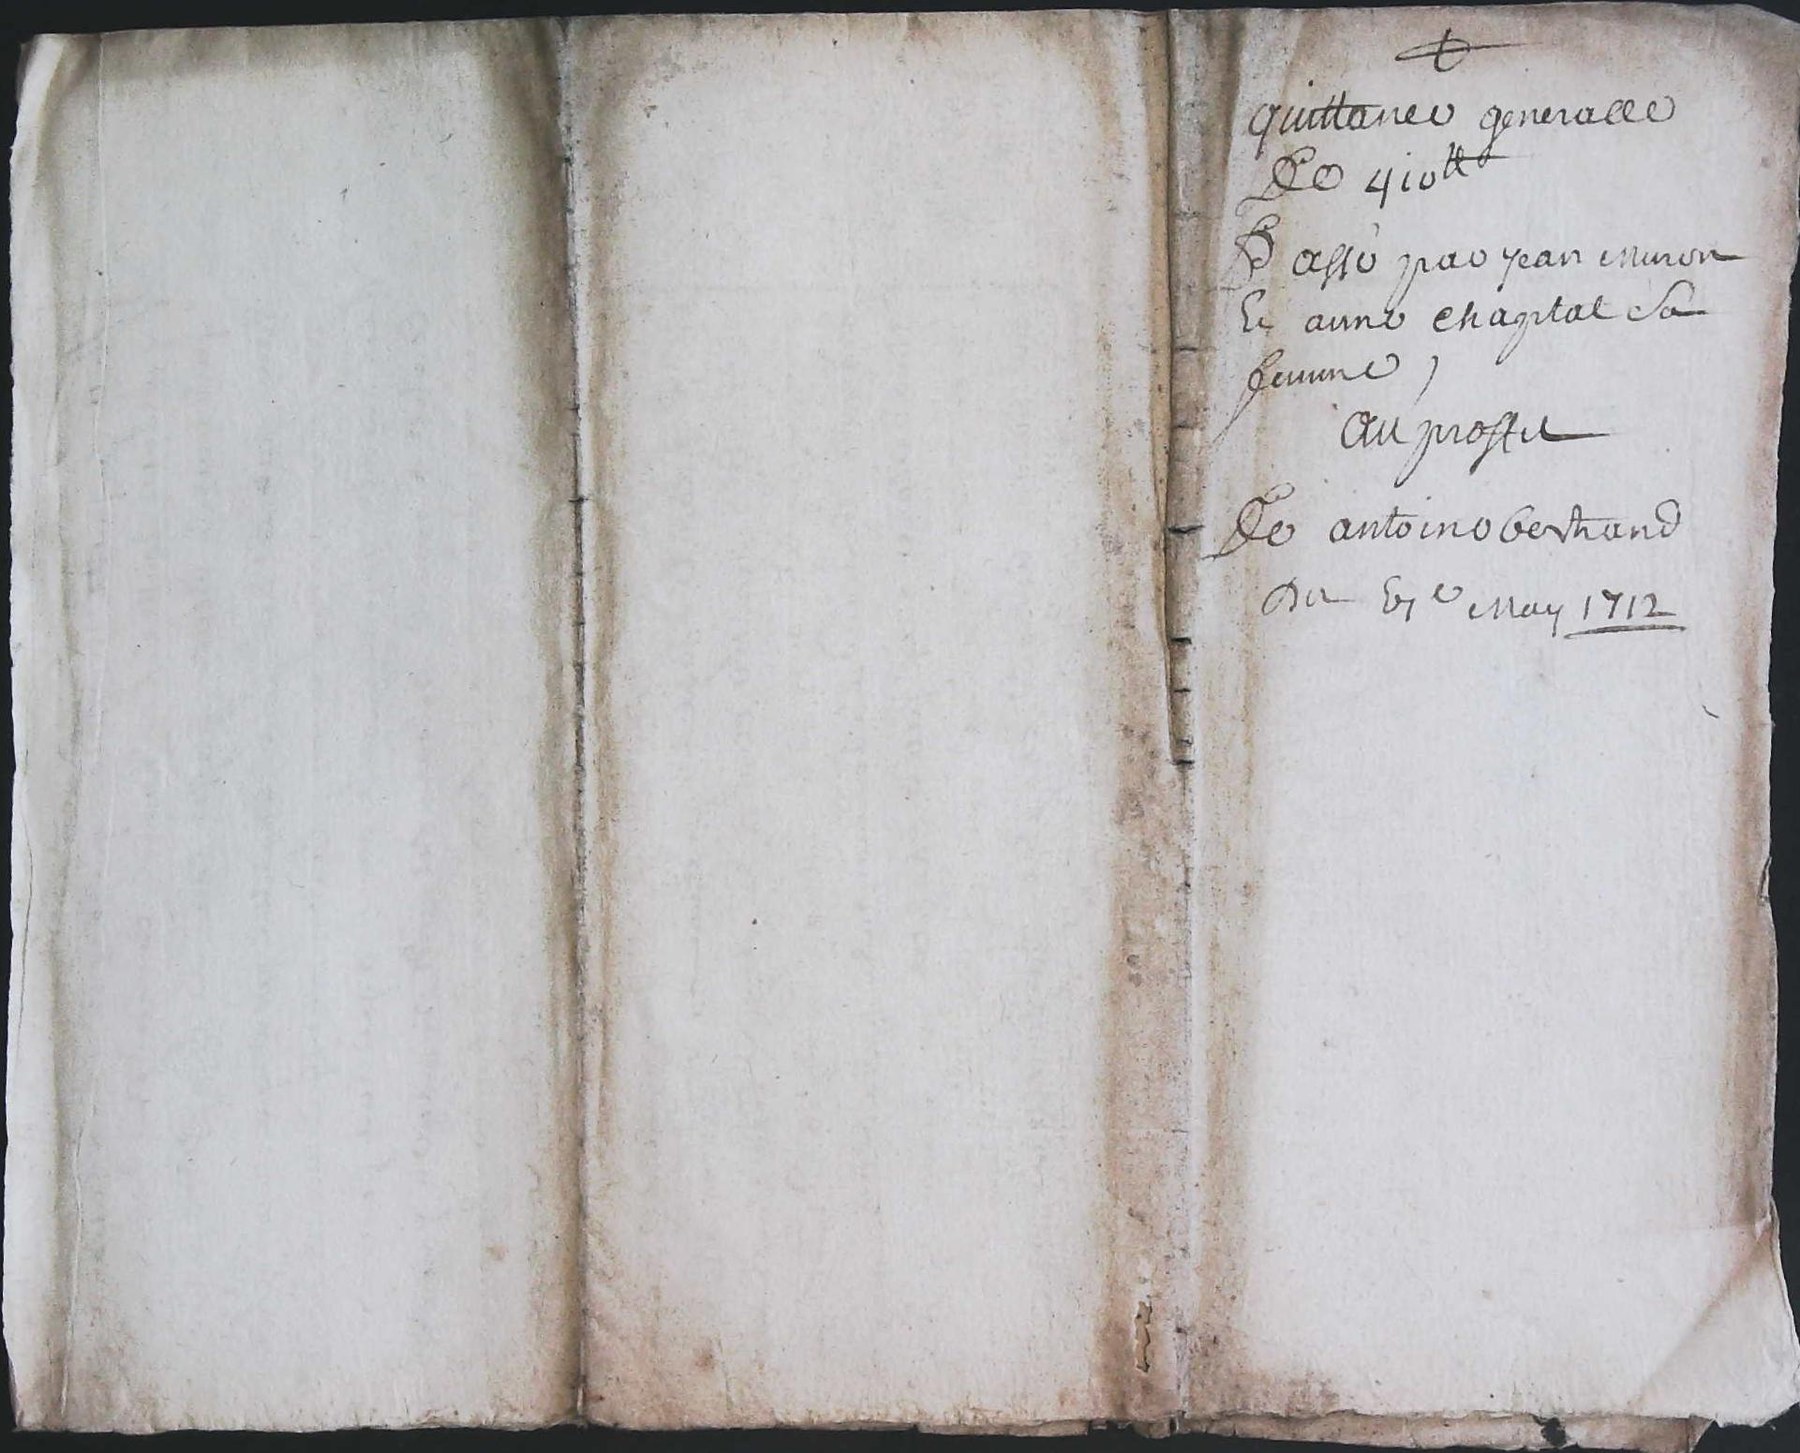 quittance generalle
De 410ᵗᵗ
Passé par Jean muron
Et anne chapital Sa
femme,
Au proffit
De antoine bertrand
Du may 1712